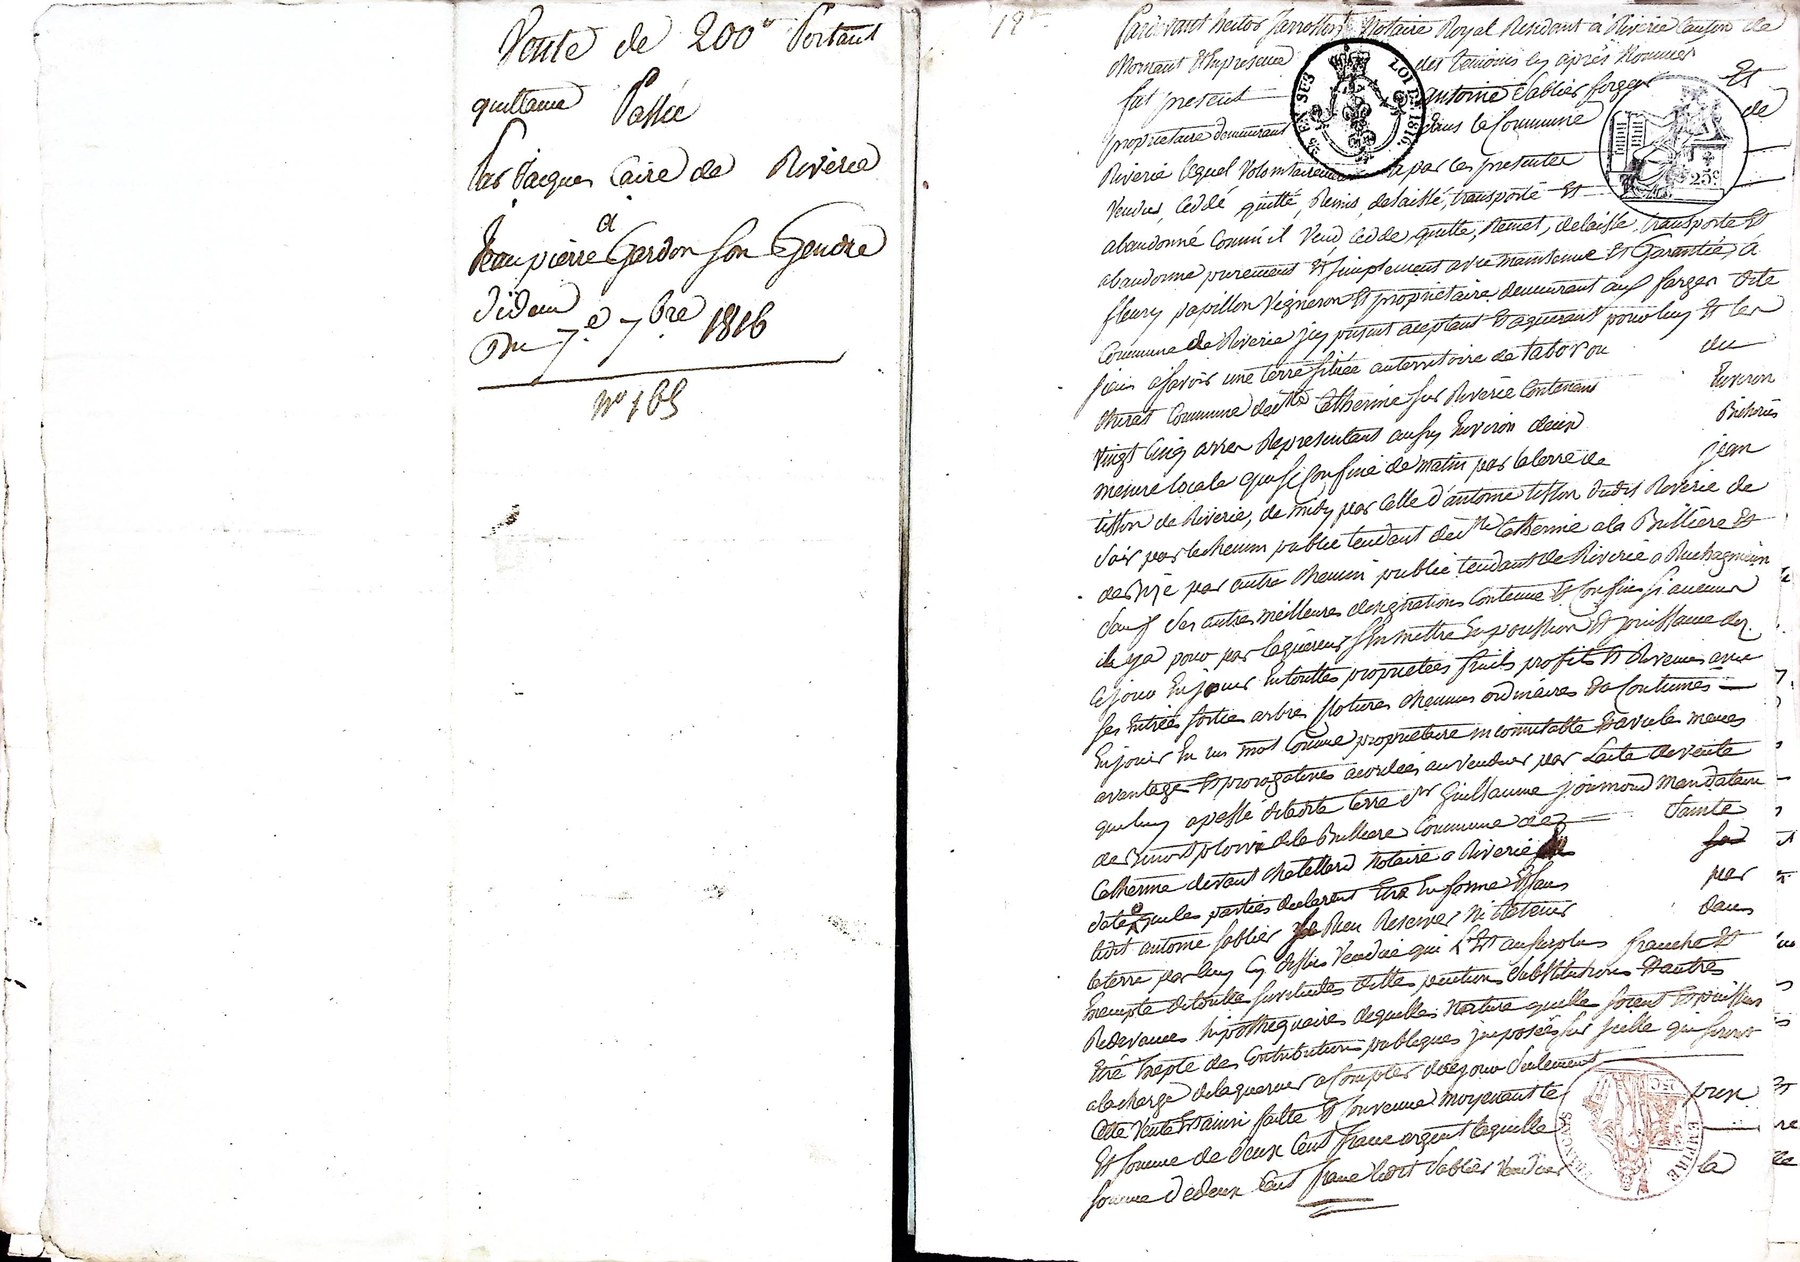 Vente de 200# Portant
quittance Passée
Par Jacques Caire de Riverie
a
Jean pierre Gardon son Gendre
d'idem
Du 7.e 7bre 1816
No 165
Pardevant hector Jarrosson Notaire Royal Residant a Riverie Canton de
Mornant Et En presence des temoins cy après Nommés
fut present antoine Sablier forger Et
proprietaire demeurant dans la Commune de
Riverie lequel volontairement a par ces presentes
Vendu, ceddé, quitté, Remis, delaissé, transporté Et
abandonné comme il Vend, cedde, quitte, Remet, delaisse, transporte Et
abandonne purement Et simplement avec maintenue Et Garantie, à
fleury papillon vigneron Et proprietaire demeurant aux farges dite
Commune de Riverie icy present aceptant Et aquerant pour luy Et les
siens asavoir une terre située au territoire de tabot ou du
Muret Commune de Ste Catherine sur Riverie contenant Environ
vingt cinq arres Representant aussy Environ deux Bicherés
mesure locale qui se confine de matin par la terre de jean
tisson de Riverie, de midy par celle d'antoine tisson dudit Riverie de
soir par le chemin public tendant de Ste Catherine a la Bullière Et
de bize par autre chemin public tendant de Riverie a
sauf ses autres meilleures designations contenue Et confins si aucuns
il y a pour par l'aquéreur s'en mettre En possession Et jouissance dez
ce jour En jouir En touttes proprietées fruits profits Et Revenus avec
ses Entrée sortie arbres clotures chemins ordinaires Et a Coutumés
En jouir En un mot comme proprietaire incomutable Et avec les memes
avantages Et prorogatives acordées au vendeur par l'acte de vente
que luy a passé de ladite terre Sr Guillaume joimond Mandataire
de de la Bulliere Commune de Sainte
Catherine devant chatellard Notaire a Riverie
date que les parties declarent Etre En forme Et sans par
ledit antoine sablier Rien Reserver Ni Retenir dans
la terre par luy cy dessus vendue qui Est au surplus franche Et
Exempte de toutte servitudes dettes pention substitutions Et autres
Redevances hipothequaires de quelles Nature quelle soient Et puissent
Etre Excepté des Contributions publiques imposées sur icelle qui seront
a la charge de laquereur a compter de ce jour seulement
Cette vente Et ainsi faitte Et convenue moyennant le prix Et
Et somme de deux Cent franc argent laquelle
somme de deux Cent franc ledit Sablier vendeur la
25c
LOI DE 1816.
EMPIRE
FRANÇAIS